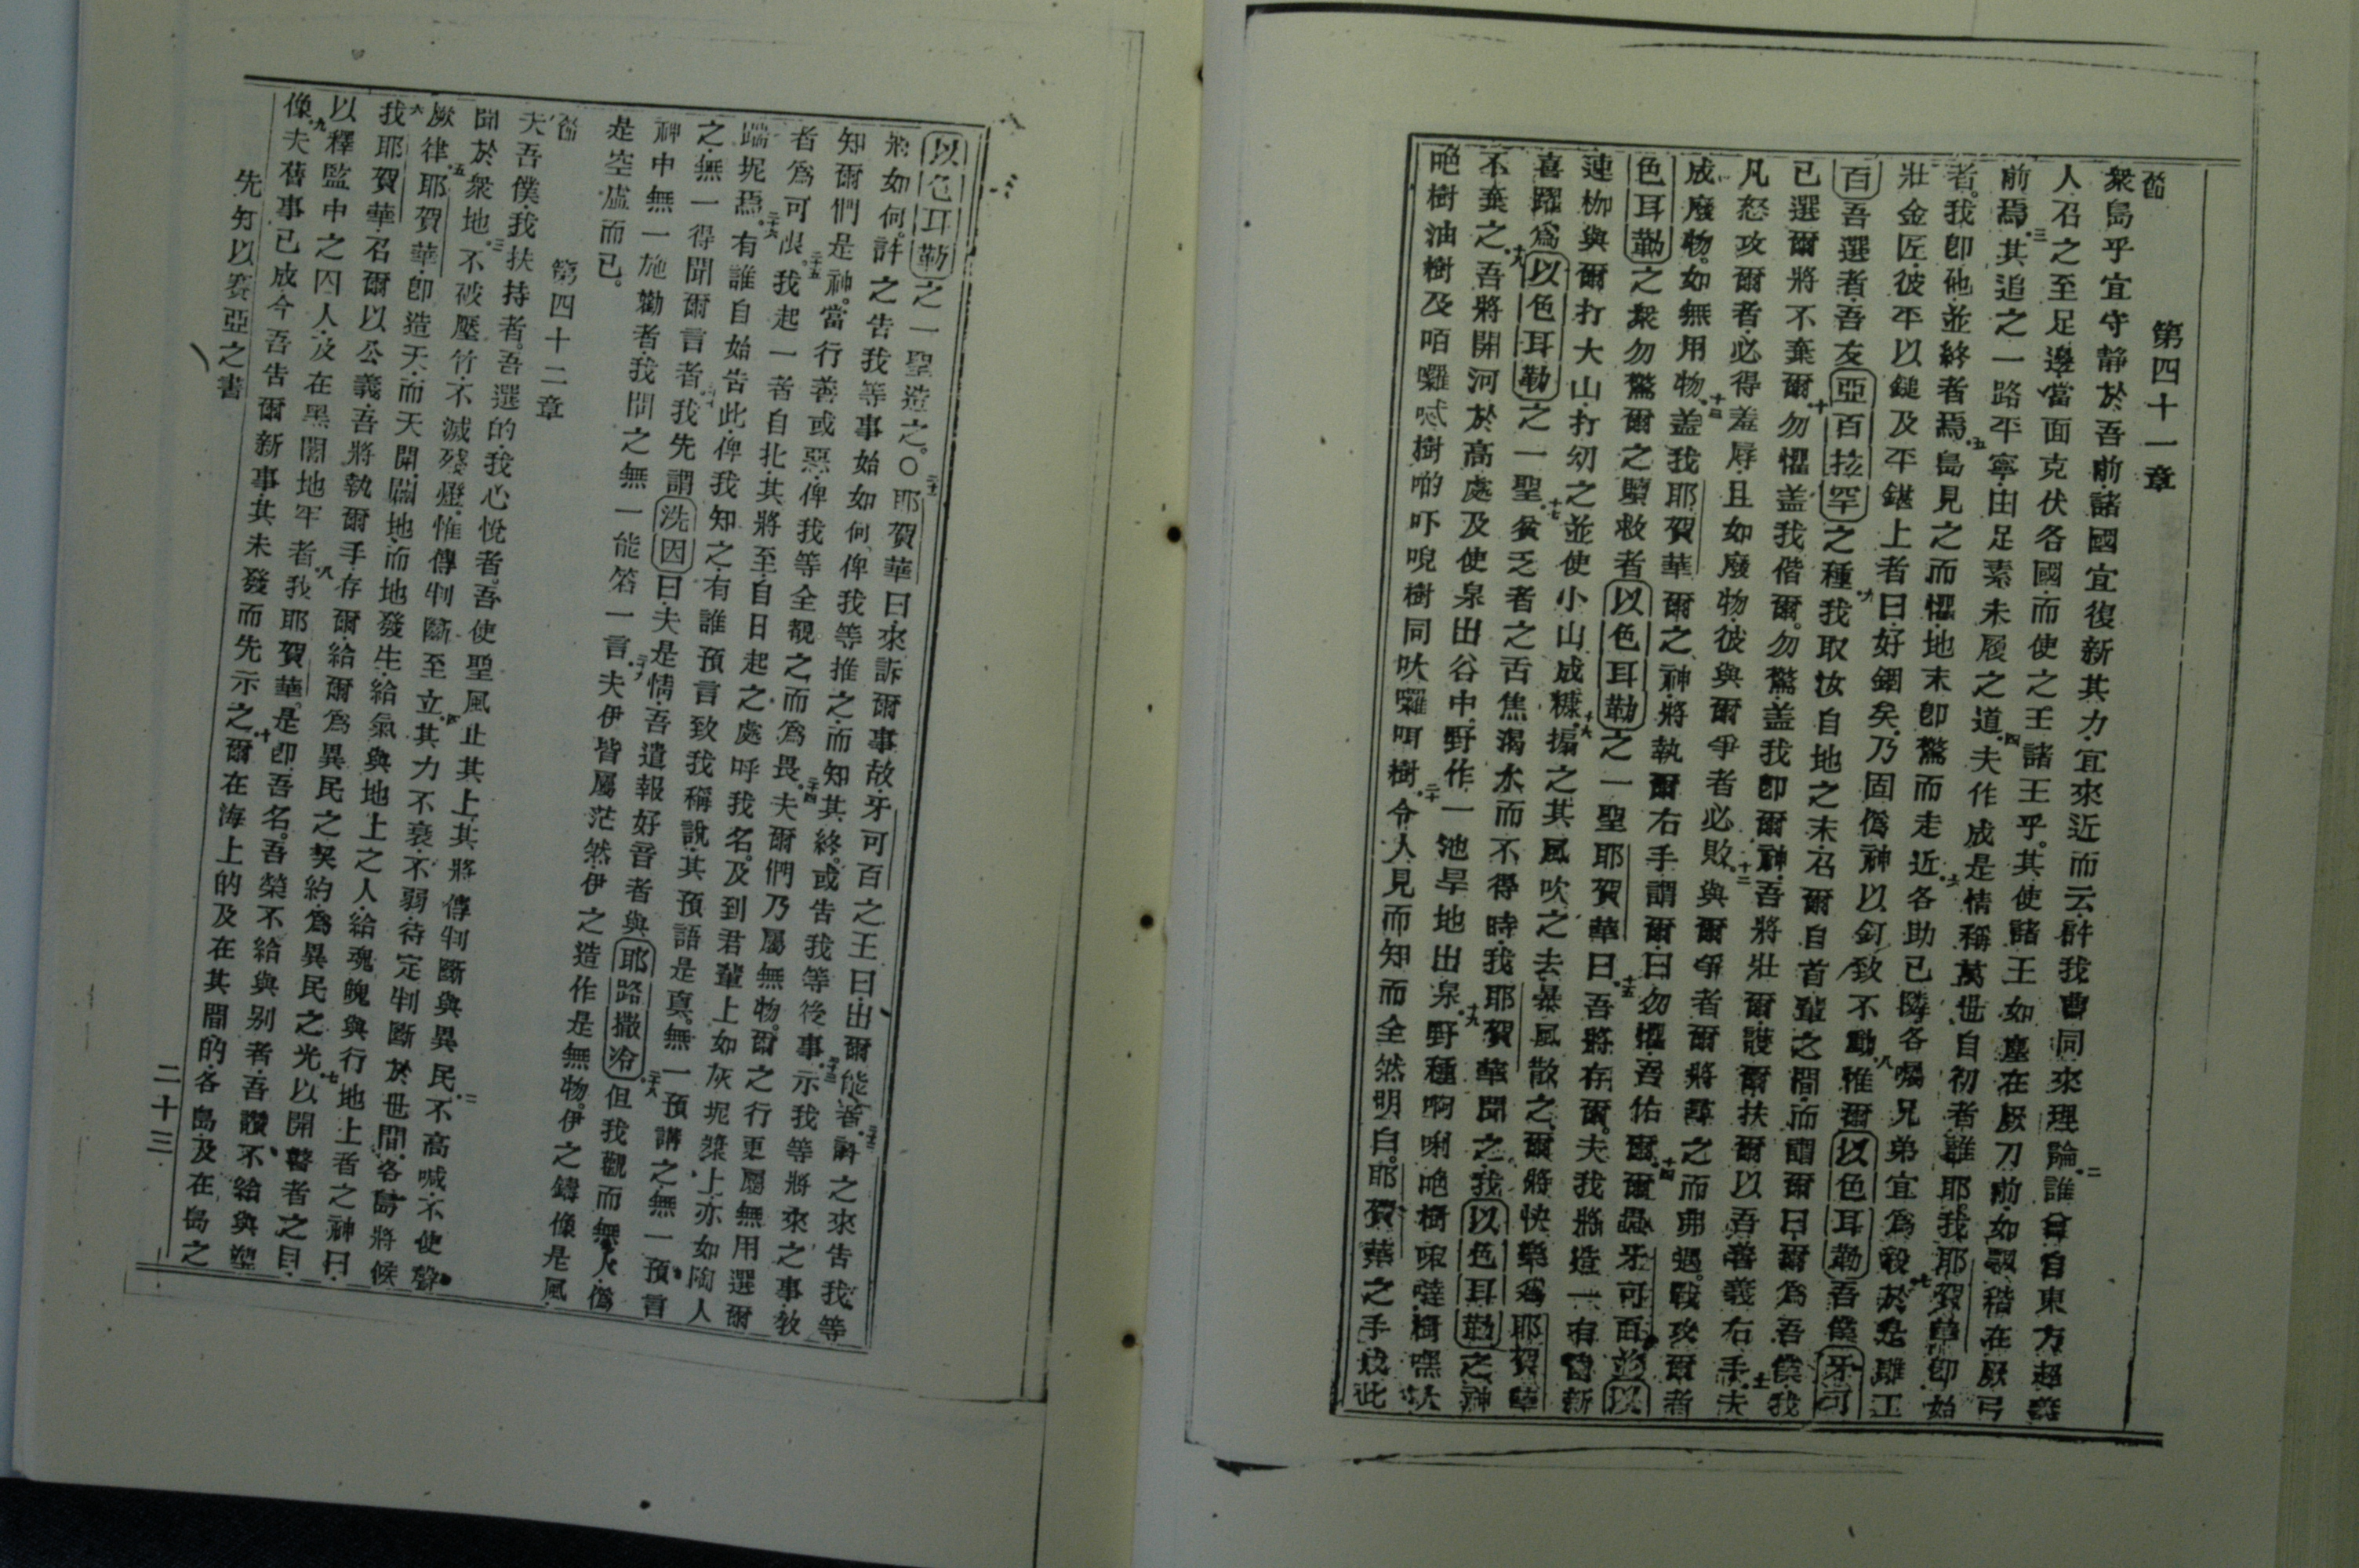 第四十一章
衆島乎宜守靜於吾前諸國宜復新其力宜來近而云許我曹同來理論二誰會自東方起義
人召之至足邊當面克伏各國而使之王諸王乎其使諸王如塵在厥刀前如飄稭在厥弓
前焉三其追之一路平寧由足素未履之道四夫作成是情稱萬世自初者誰耶我耶賀華卽始
者我卽他並終者焉五島見之而懼地末卽驚而走近六各助已隣各囑兄弟宜爲毅七於是雕工
壯金匠彼平以鎚及平鍖上者曰好銲矣乃固僞神以釘致不動八惟爾以色耳勒吾僕牙可
百吾選者吾友亞百拉罕之種九我取汝自地之末召爾自首輩之間而謂爾曰爾爲吾僕我
已選爾將不棄爾十勿懼盖我偕爾勿驚盖我卽爾神吾將壯爾護爾扶爾以吾善義右手十一夫
凡怒攻爾者必得羞辱且如廢物彼與爾爭者必敗十二與爾爭者爾將尋之而弗遇戰攻爾者
成廢物如無用物十三盖我耶賀華爾之神將執爾右手謂爾曰勿懼吾佑爾十四爾蟲牙可百並以
色耳勒之衆勿驚爾之贖救者以色耳勒之一聖耶賀華曰十五吾將存爾夫我將造一有齒新
連枷與爾打大山打幼之並使小山成糠十六搧之其風吹之去暴風散之爾將快樂爲耶賀華
喜躍爲以色耳勒之一聖十七貧乏者之舌焦渴水而不得時我耶賀華聞之我以色耳勒之神
不棄之十八吾將開河於高處及使泉出谷中野作一池旱地出泉十九野種啊唎𠵽樹㗑噠樹嘿㕭
𠵽樹油樹及咟囉㖪樹啲吓唲樹同㕭囉㖿樹二十令人見而知而全然明白耶賀華之手成此
以色耳勒之一聖造之○二十一耶賀華曰來訴爾事故牙可百之王曰出爾能者二十二許之來告我等
將如何許之告我等事始如何俾我等推之而知其終或告我等後事二十三示我等將來之事敎
知爾們是神當行善或惡俾我等全覩之而爲畏二十四夫爾們乃屬無物爾之行更屬無用選爾
者爲可恨二十五我起一者自北其將至自日起之處呼我名及到君輩上如灰坭漿上亦如陶人
踹坭焉二十六有誰自始告此俾我知之有誰預言致我稱說其預語是眞無一預講之無一預言
之無一得聞爾言者二十七我先謂洗因曰夫是情吾遣報好音者與耶路撒冷二十八但我觀而無人僞
神中無一施勸者我問之無一能答一言二十九夫伊皆屬茫然伊之造作是無物伊之鑄像是風
是空虛而已
第四十二章
夫吾僕我扶持者吾選的我心悅者吾使聖風止其上其將傳判斷與異民二不高喊不使聲
聞於衆地三不破壓竹不滅殘燈惟傳判斷至立四其力不衰不弱待定判斷於世間各島將候
厥律五耶賀華卽造天而天開闢地而地發生給氣與地上之人給魂魄與行地上者之神曰
六我耶賀華召爾以公義吾將執爾手存爾給爾爲異民之契約爲異民之光七以開瞽者之目
以釋監中之囚人及在黑闇地牢者八我耶賀華是卽吾名吾榮不給與别者吾讚不給與塑
像九夫舊事已成今吾告爾新事其未發而先示之十爾在海上的及在其間的各島及在島之
先知以賽亞之書
二十三